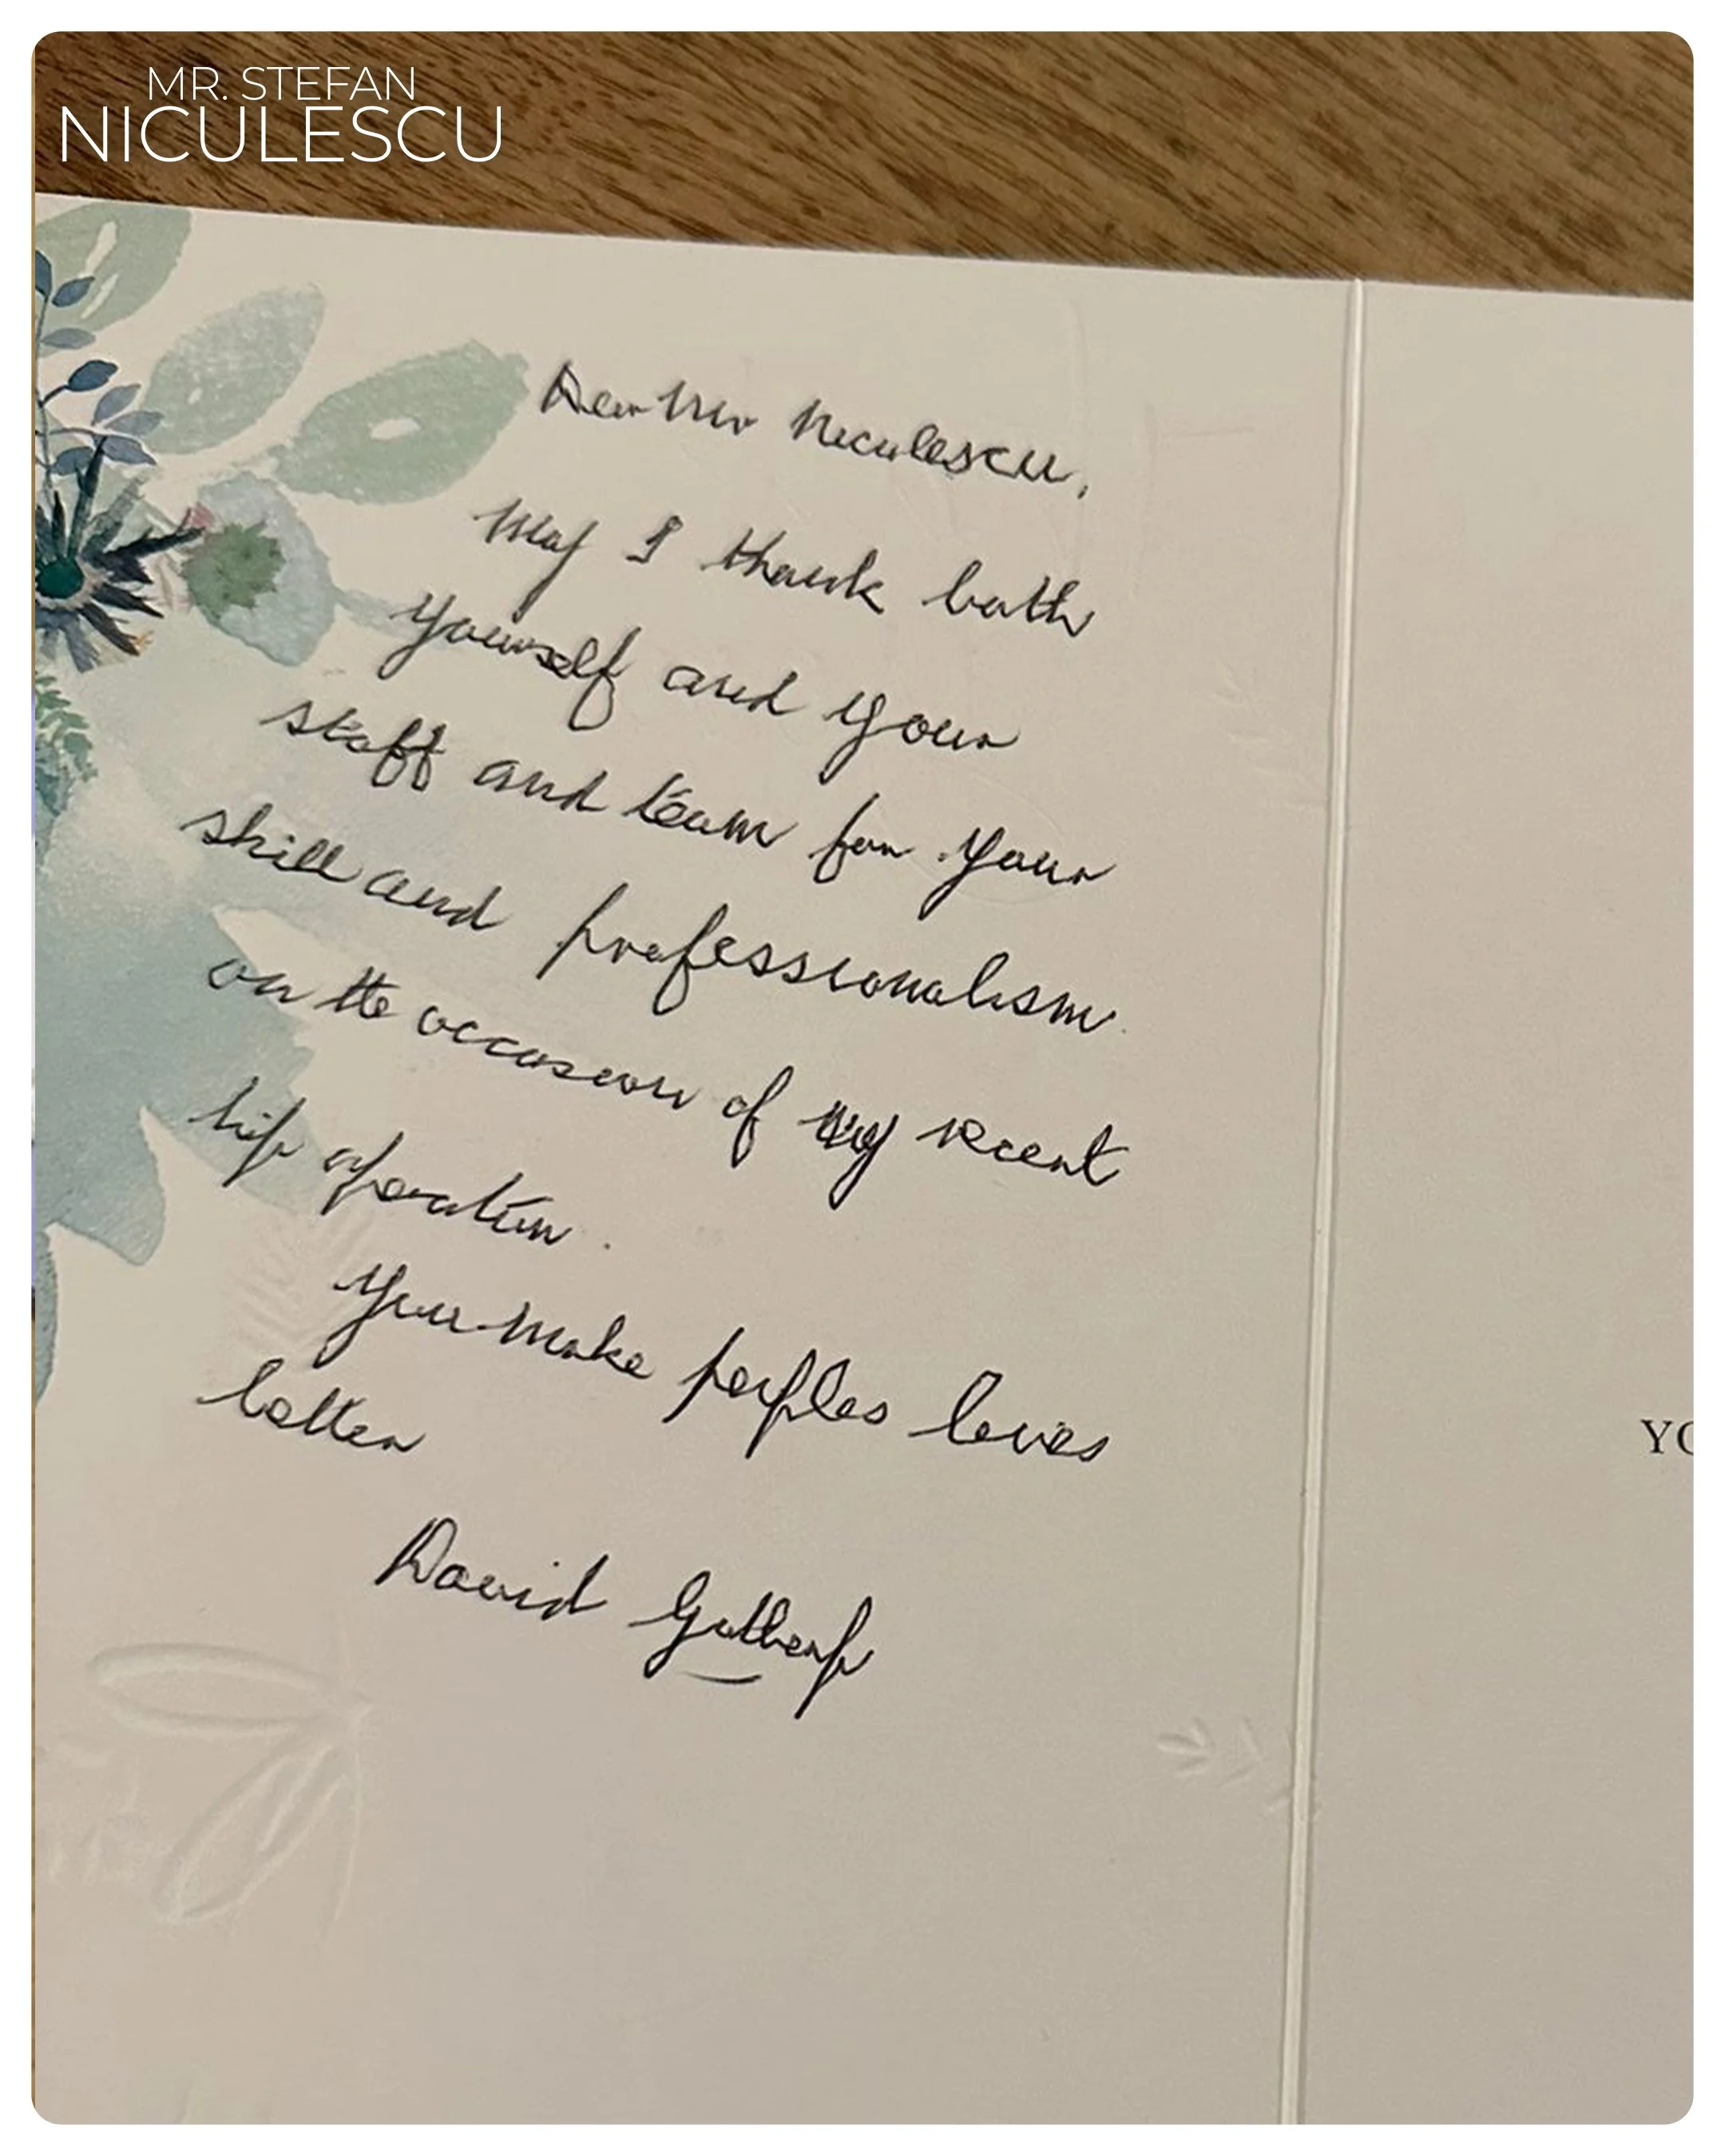 MR. STEFAN
NICULESCU
Dear Mr Niculescu,
May I thank both
yourself and your
staff and team for your
skill and professionalism
on the occasion of my recent
hip operation.
You make peoples lives
better
David
YO